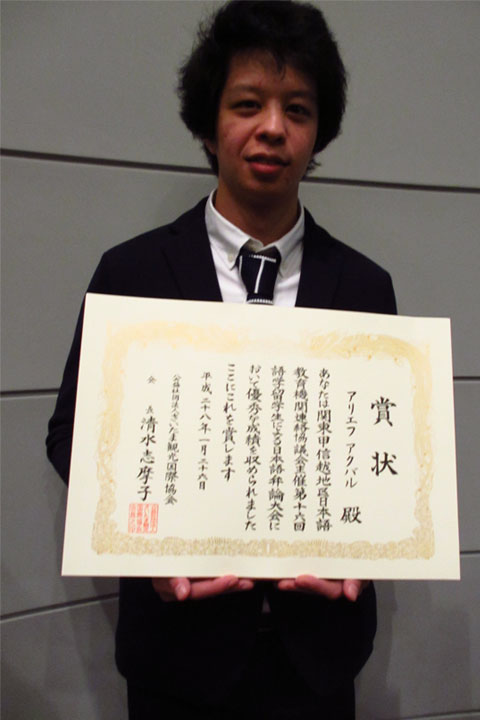 賞状
アリエフ アクバル 殿
あなたは関東甲信越地区日本語
教育機関連絡協議会主催第十六回
語学留学生による日本語弁論大会に
おいて優秀な成績を収められました
ここにこれを賞します
平成二十八年一月二十六日
公益社団法人さいたま観光国際協会
会長 清水志摩子